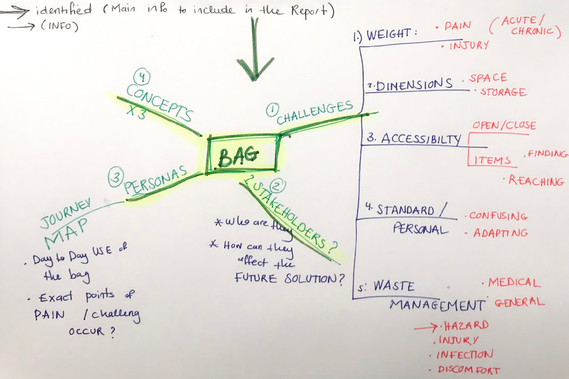 → identified (Main info to include in the Report)
→ (INFO)
BAG
① CHALLENGES
② STAKEHOLDERS?
* Who are they
* How can they
affect the
FUTURE SOLUTION?
③ PERSONAS
JOURNEY
MAP
· Day to Day USE of
the bag
· Exact points of
PAIN / challeng
OCCUR?
④ CONCEPTS
X3
1.) WEIGHT:
· PAIN (ACUTE/
CHRONIC)
· INJURY
2. DIMENSIONS
· SPACE
· STORAGE
3. ACCESSIBILTY
OPEN/CLOSE
ITEMS
· FINDING
· REACHING
4. STANDARD /
PERSONAL
· CONFUSING
· ADAPTING
5: WASTE
MANAGEMENT
· MEDICAL
· GENERAL
→ · HAZARD
· INJURY
· INFECTION
· DISCOMFORT